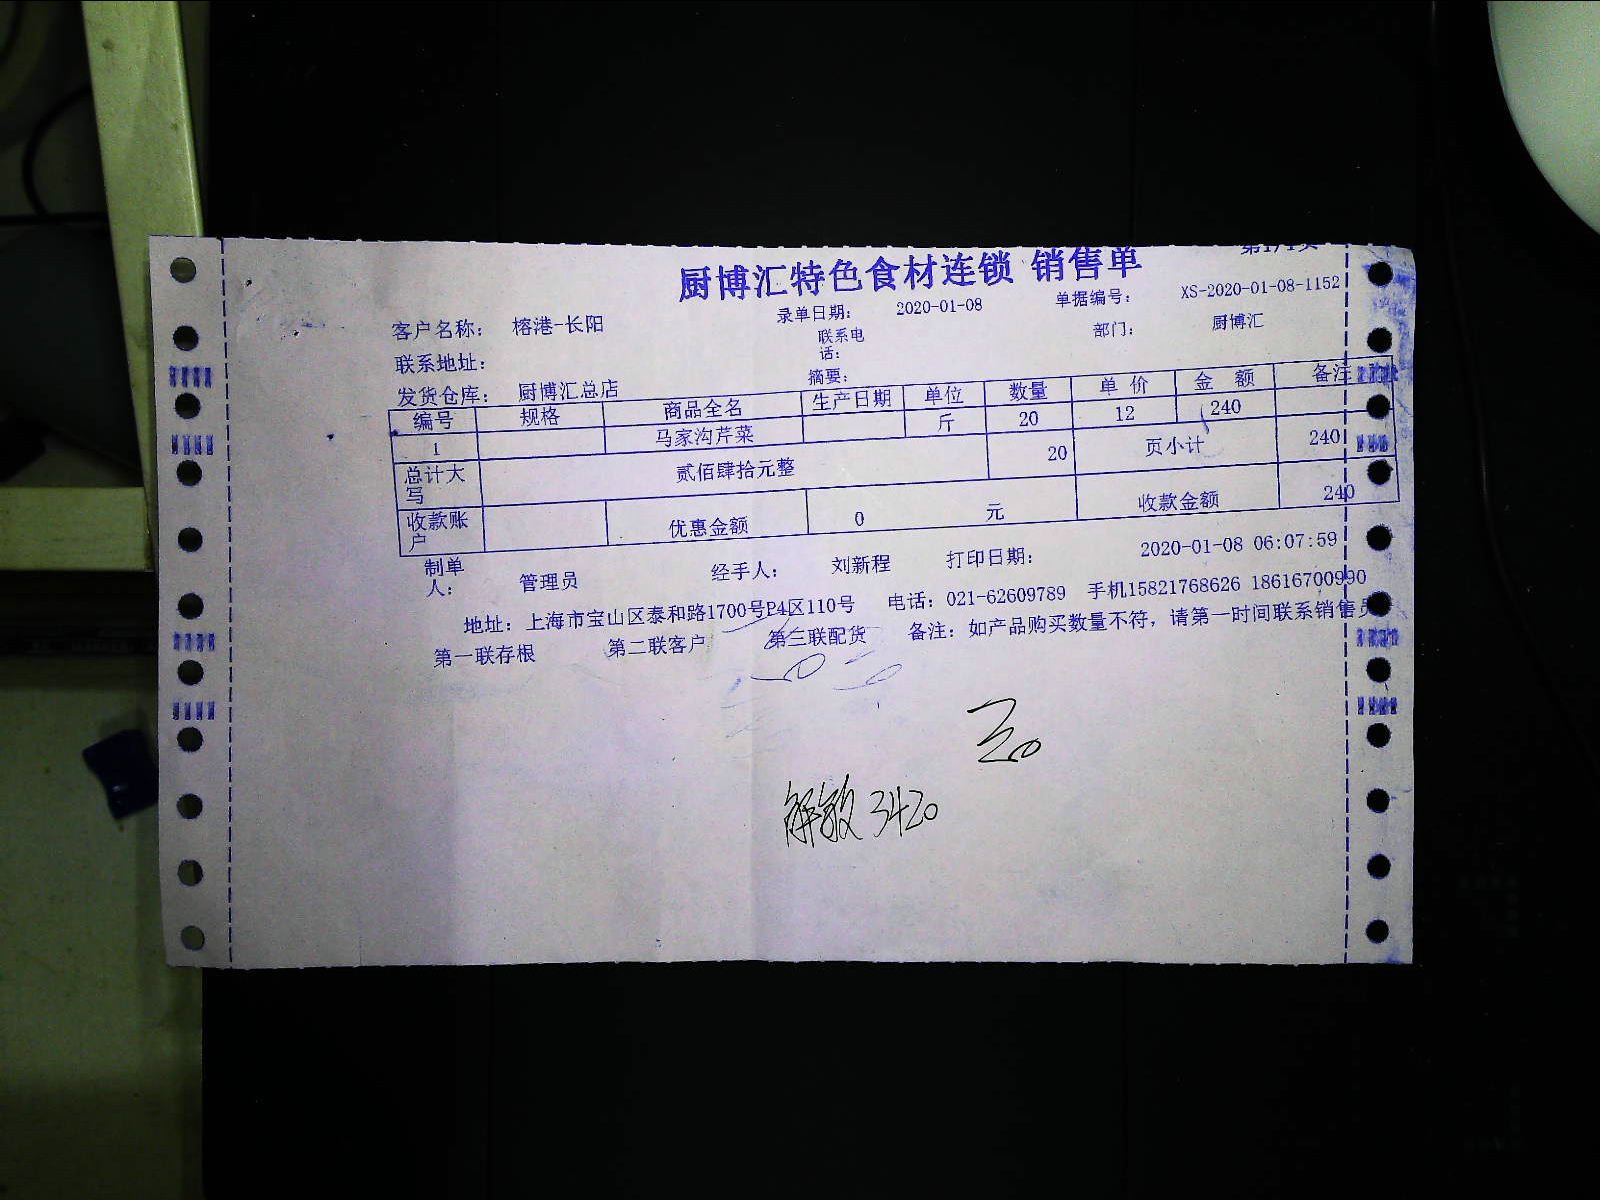 第1/1页
厨博汇特色食材连锁 销售单
客户名称: 榕港-长阳 录单日期: 2020-01-08 单据编号: XS-2020-01-08-1152
联系地址: 联系电话: 部门: 厨博汇
发货仓库: 厨博汇总店 摘要:
编号 规格 商品全名 生产日期 单位 数量 单 价 金 额 备注
1 马家沟芹菜 斤 20 12 240
总计大写 贰佰肆拾元整 20 页小计 240
收款账户 优惠金额 0 元 收款金额 240
制单人: 管理员 经手人: 刘新程 打印日期: 2020-01-08 06:07:59
地址: 上海市宝山区泰和路1700号P4区110号 电话: 021-62609789 手机15821768626 18616700990
第一联存根 第二联客户 第三联配货 备注: 如产品购买数量不符, 请第一时间联系销售员
解敏 3420